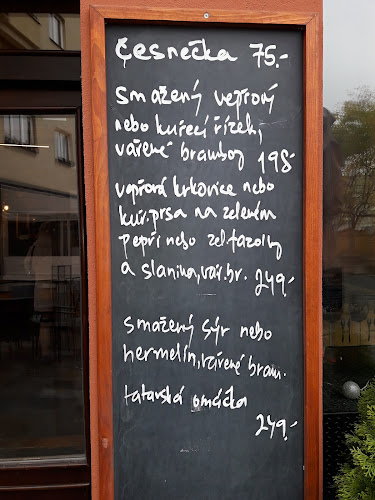 česnečka 75.-
smažený vepřový
nebo kuřecí řízek,
vařené brambory 198
vepřová krkovice nebo
kuř.prsa na zeleném
pepři nebo zel.fazolky
a slanina,vař.br. 249.-
smažený sýr nebo
hermelín,vařené bram.
tatarská omáčka
249.-